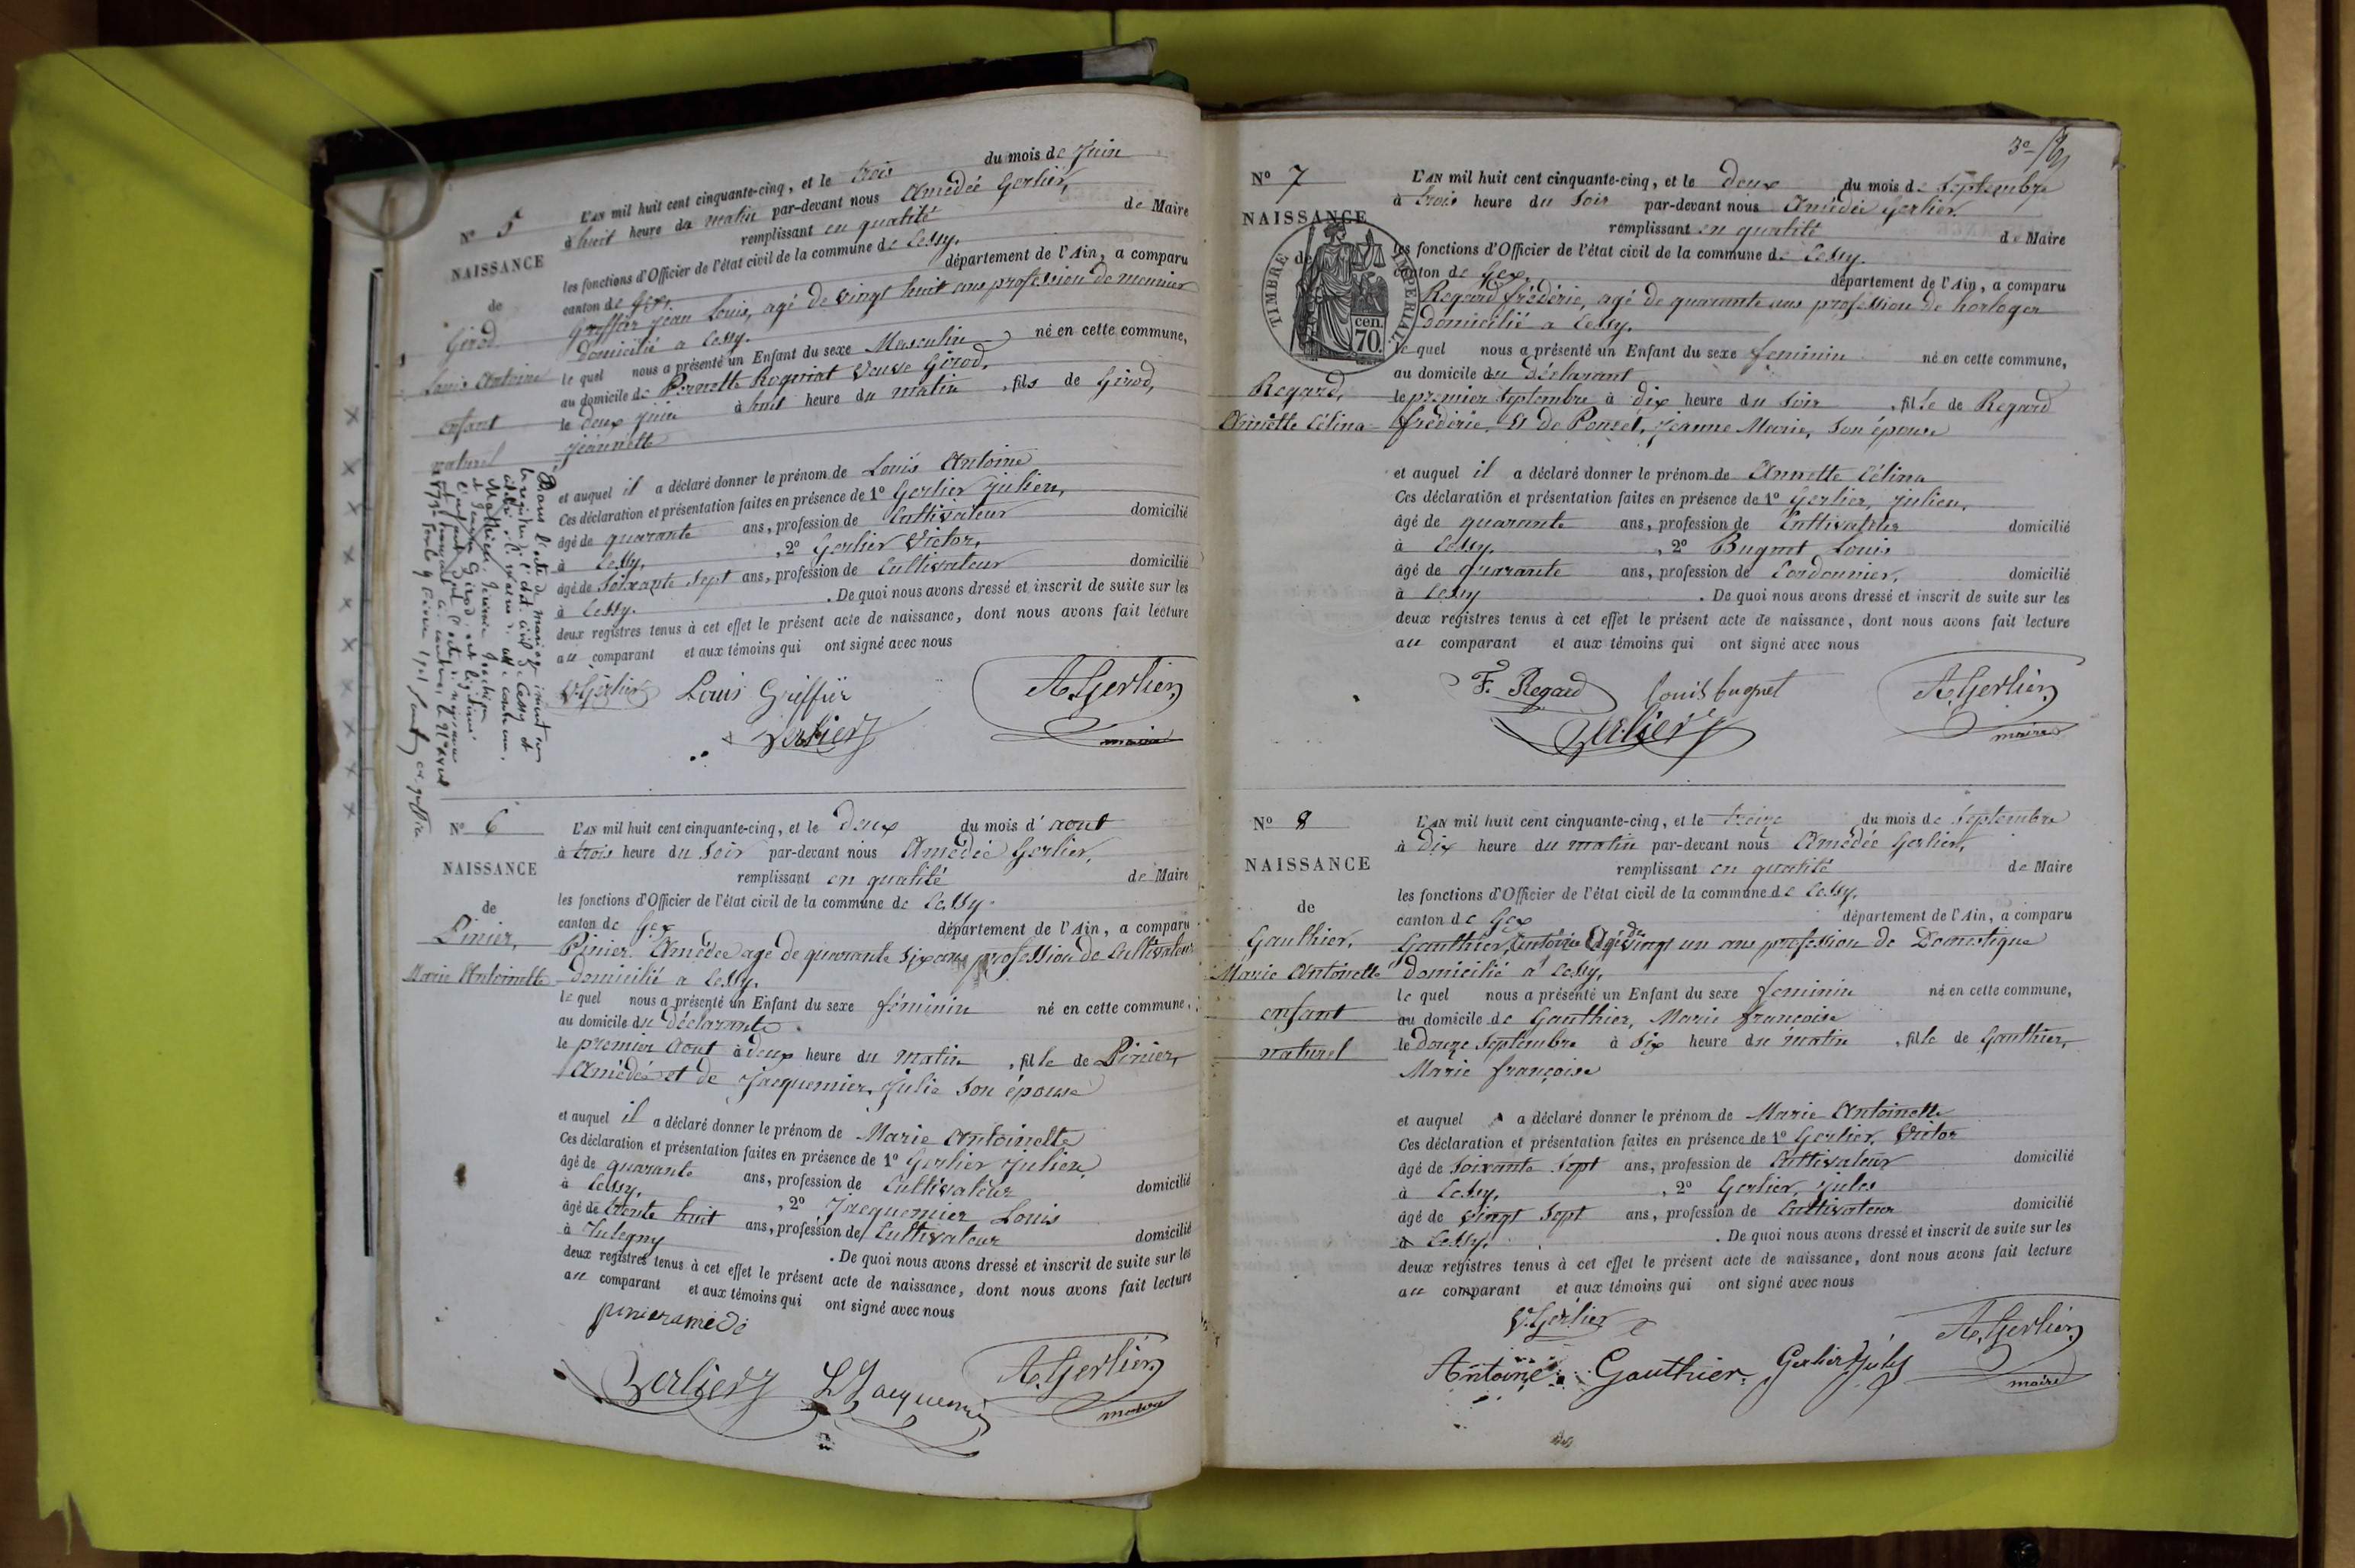 N° 5
NAISSANCE
de
Girod
Louis Antoine
enfant
naturel
L'AN mil huit cent cinquante-cinq, et le trois du mois de Juin
à huit heure du matin par-devant nous Amédée Gerlier,
remplissant en qualité de Maire
les fonctions d'Officier de l'état civil de la commune de Cessy.
canton de Gex. département de l'Ain, a comparu
Griffier Jean Louis, agé de vingt huit ans profession de meunier
domicilié a Cessy.
le quel nous a présenté un Enfant du sexe Masculin né en cette commune,
au domicile de Pernette Rogeriat Veuve Girod,
le deux juin à huit heure du matin , fils de Girod,
jeannette
et auquel il a déclaré donner le prénom de Louis Antoine
Ces déclaration et présentation faites en présence de 1° Gerlier Julien,
âgé de quarante ans, profession de Cultivateur domicilié
à Cessy, , 2° Gerlier Victor,
âgé de Soixante Sept ans, profession de Cultivateur domicilié
à Cessy. . De quoi nous avons dressé et inscrit de suite sur les
deux registres tenus à cet effet le présent acte de naissance, dont nous avons fait lecture
au comparant et aux témoins qui ont signé avec nous
V. Gerlier Louis Griffier A. Gerlier
Gerlier maire
Dans l'acte de mariage inscrit
N° 6
NAISSANCE
de
Pinier,
Marie Antoinette
L'AN mil huit cent cinquante-cinq, et le deux du mois d'aout
à trois heure du Soir par-devant nous Amédée Gerlier,
remplissant en qualité de Maire
les fonctions d'Officier de l'état civil de la commune de Cessy.
canton de Gex département de l'Ain, a comparu
Pinier Amédée agé de quarante six ans profession de Cultivateur
domicilié a Cessy.
le quel nous a présenté un Enfant du sexe féminin né en cette commune,
au domicile du Déclarante
le premier Aout à deux heure du matin , fille de Pinier,
Amédée et de Jacquemier, Julie Son épouse
et auquel il a déclaré donner le prénom de Marie Antoinette
Ces déclaration et présentation faites en présence de 1° Gerlier Julien,
âgé de quarante ans, profession de Cultivateur domicilié
à Cessy, , 2° Jacquemier Louis
âgé de trente huit ans, profession de Cultivateur domicilié
à . De quoi nous avons dressé et inscrit de suite sur les
deux registres tenus à cet effet le présent acte de naissance, dont nous avons fait lecture
au comparant et aux témoins qui ont signé avec nous
pinier amédé
Gerlier L Jacquemier A. Gerlier
maire
N° 7
NAISSANCE
de
TIMBRE IMPERIAL
cen. 70.
Regard,
Annette Célina
L'AN mil huit cent cinquante-cinq, et le deux du mois de Septembre
à trois heure du Soir par-devant nous Amédée Gerlier.
remplissant en qualité de Maire
les fonctions d'Officier de l'état civil de la commune de Cessy.
canton de Gex. département de l'Ain, a comparu
Regard frédéric, agé de quarante ans profession de horloger
domicilié a Cessy.
le quel nous a présenté un Enfant du sexe feminin né en cette commune,
au domicile du Déclarant
le premier Septembre à dix heure du Soir , fille de Regard
frédéric, Et de Poncet, Jeanne Marie, Son épouse
et auquel il a déclaré donner le prénom de Annette Célina
Ces déclaration et présentation faites en présence de 1° Gerlier, Julien,
âgé de quarante ans, profession de Cultivateur domicilié
à Cessy. , 2° Bugnet Louis
âgé de quarante ans, profession de Cordonnier, domicilié
à Cessy . De quoi nous avons dressé et inscrit de suite sur les
deux registres tenus à cet effet le présent acte de naissance, dont nous avons fait lecture
au comparant et aux témoins qui ont signé avec nous
F. Regard Louis bugnet A. Gerlier
Gerlier maire
N° 8
NAISSANCE
de
Gauthier,
Marie Antoinette
enfant
naturel
L'AN mil huit cent cinquante-cinq, et le treize du mois de Septembre
à Dix heure du matin par-devant nous Amédée Gerlier,
remplissant en qualité de Maire
les fonctions d'Officier de l'état civil de la commune de Cessy.
canton de Gex département de l'Ain, a comparu
Gauthier, Antoine Agé de vingt un ans profession de Domestique
domicilié a Cessy,
le quel nous a présenté un Enfant du sexe feminin né en cette commune,
au domicile de Gauthier, Marie françoise
le douze Septembre à Six heure du matin , fille de Gauthier,
Marie françoise
et auquel a déclaré donner le prénom de Marie Antoinette
Ces déclaration et présentation faites en présence de 1° Gerlier, Victor
âgé de Soixante Sept ans, profession de Cultivateur domicilié
à Cessy, , 2° Gerlier, Jules
âgé de vingt Sept ans, profession de Cultivateur domicilié
à Cessy. . De quoi nous avons dressé et inscrit de suite sur les
deux registres tenus à cet effet le présent acte de naissance, dont nous avons fait lecture
au comparant et aux témoins qui ont signé avec nous
V. Gerlier A. Gerlier
Antoine Gauthier Gerlier Jules maire